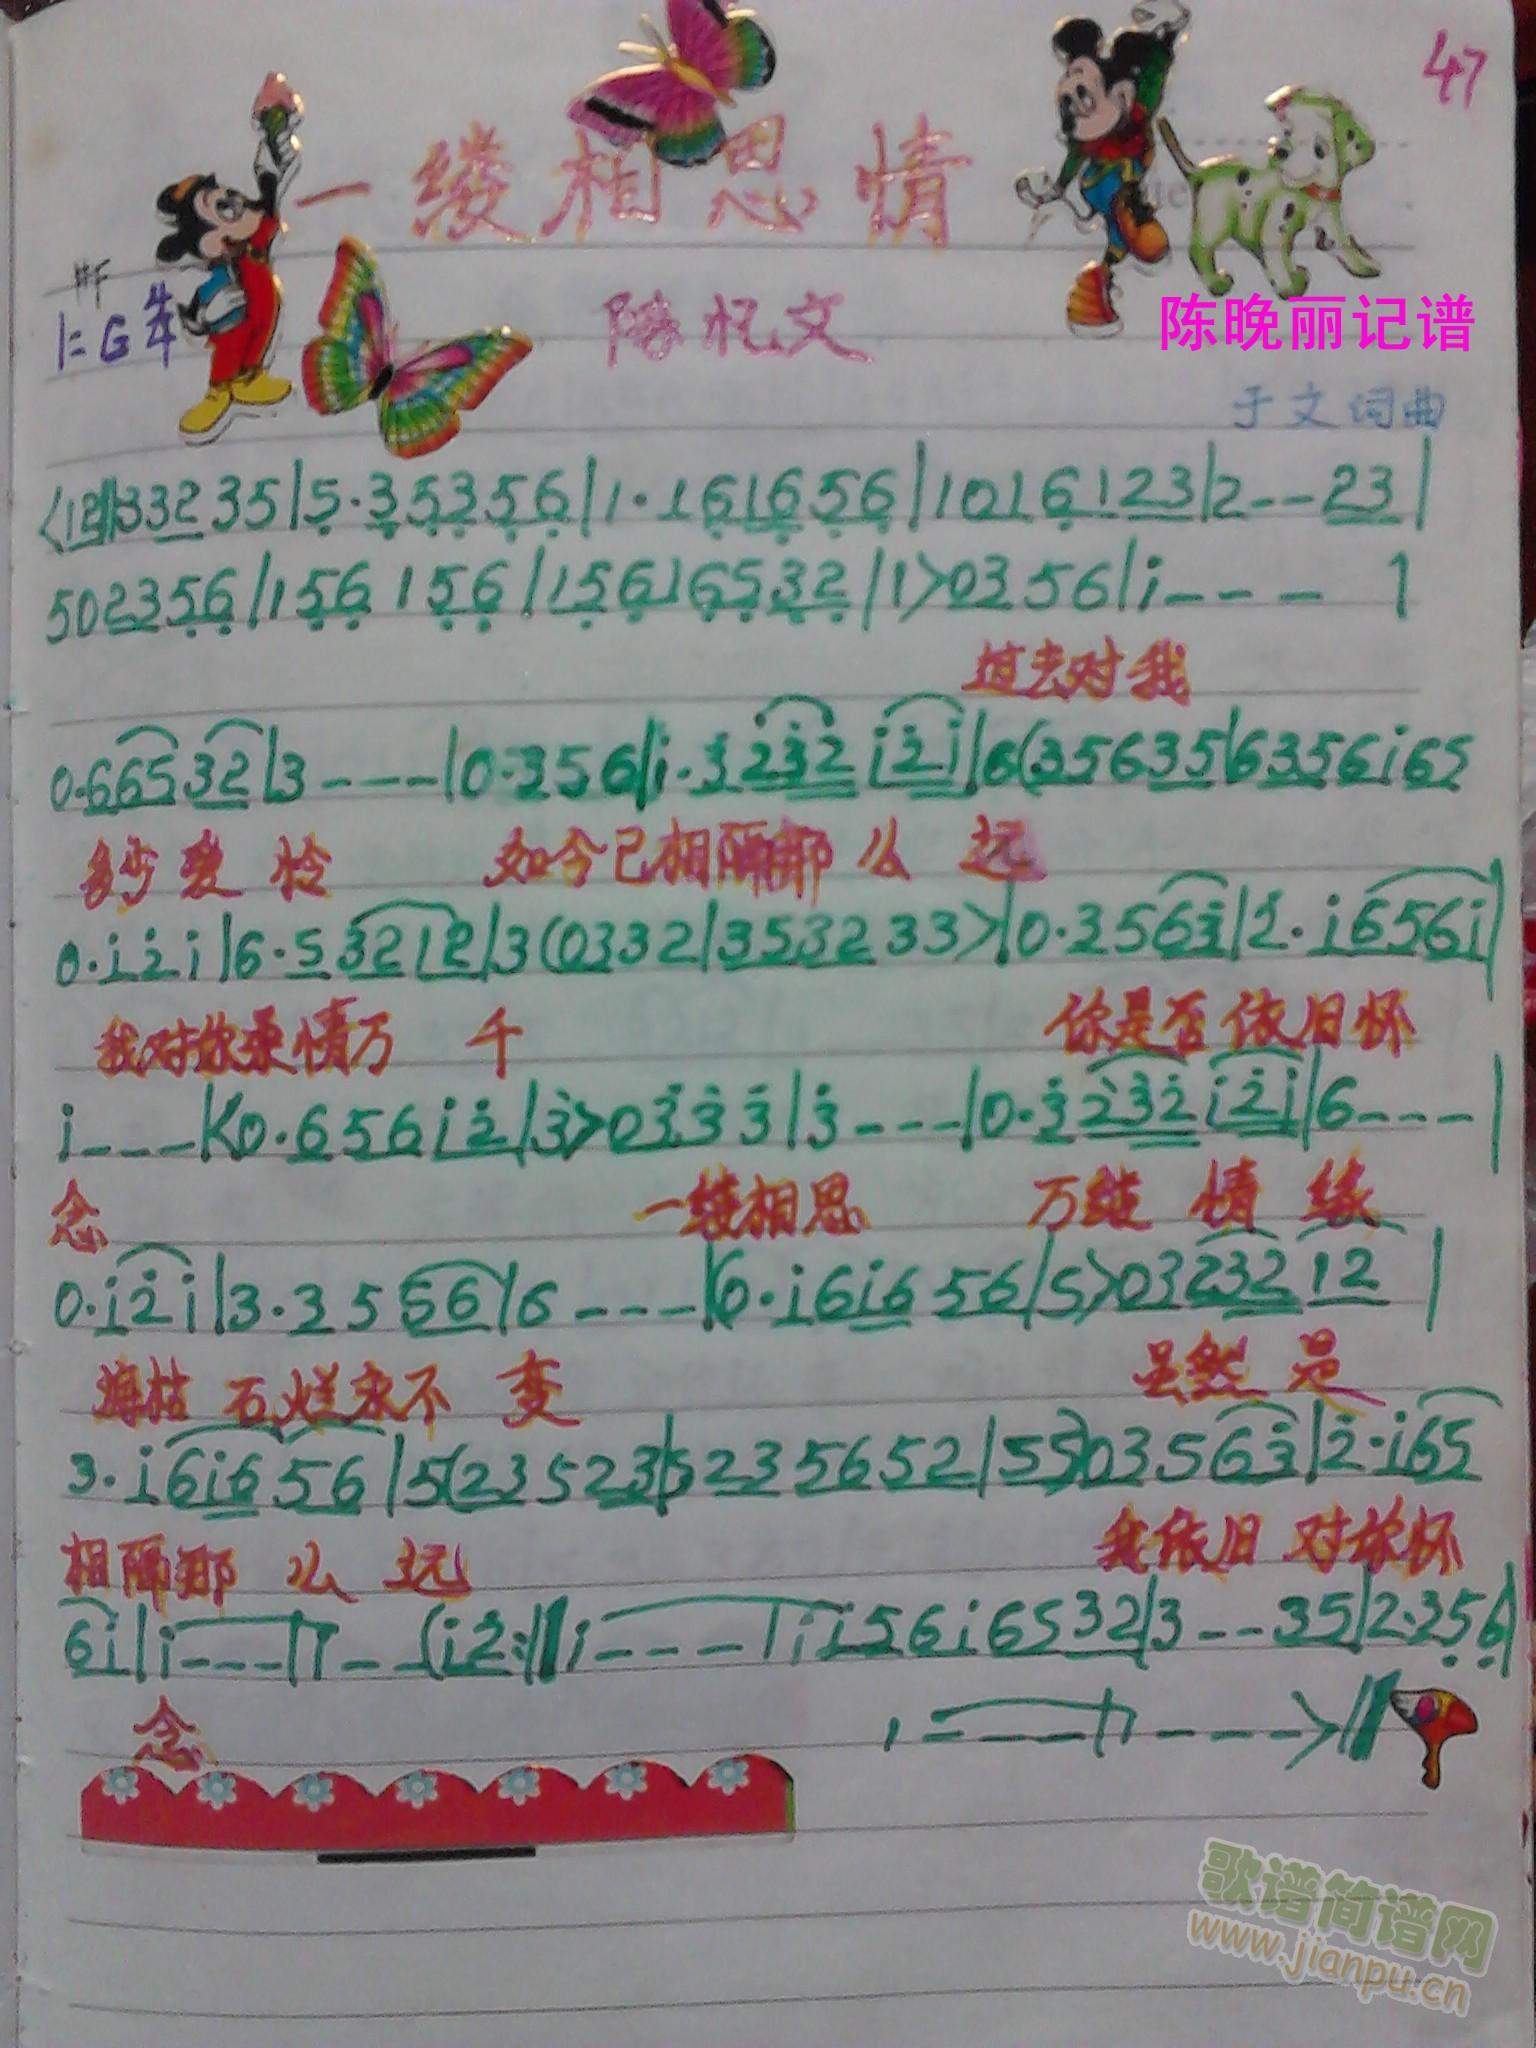 47
一缕相思情
#F
1=G 4/4
陈忆文
陈晚丽记谱
于文词曲
<12‖33235|5·35356|1·161656|10161123|2--23|
502356|156 156|15616532|1>0356|i---|
过去对我
0·66532|3----|0·356|i·3232i2i|6(35635|6356i65
多少爱怜 如今已相隔那么远
0·i2i|6·53212|3(0332|3532 33>|0·3563|2·i656i|
我对你柔情万千 你是否依旧怀
i---|<0·656i2|3>0333|3---|0·3232i2i|6---|
念 一缕相思 万缕情缘
0·i2i|3·35 56|6----|6·i6i6 56|5>03232 12|
海枯石烂永不变 虽然是
3·i6i6 56|5(23523|5235652|55)03563|2·i65
相隔那么远 我依旧对你怀
6i|i---|i--(i2:‖i---|ii56i6532|3--35|2·356|
念
1---|1--->‖
歌谱简谱网
www.jianpu.cn